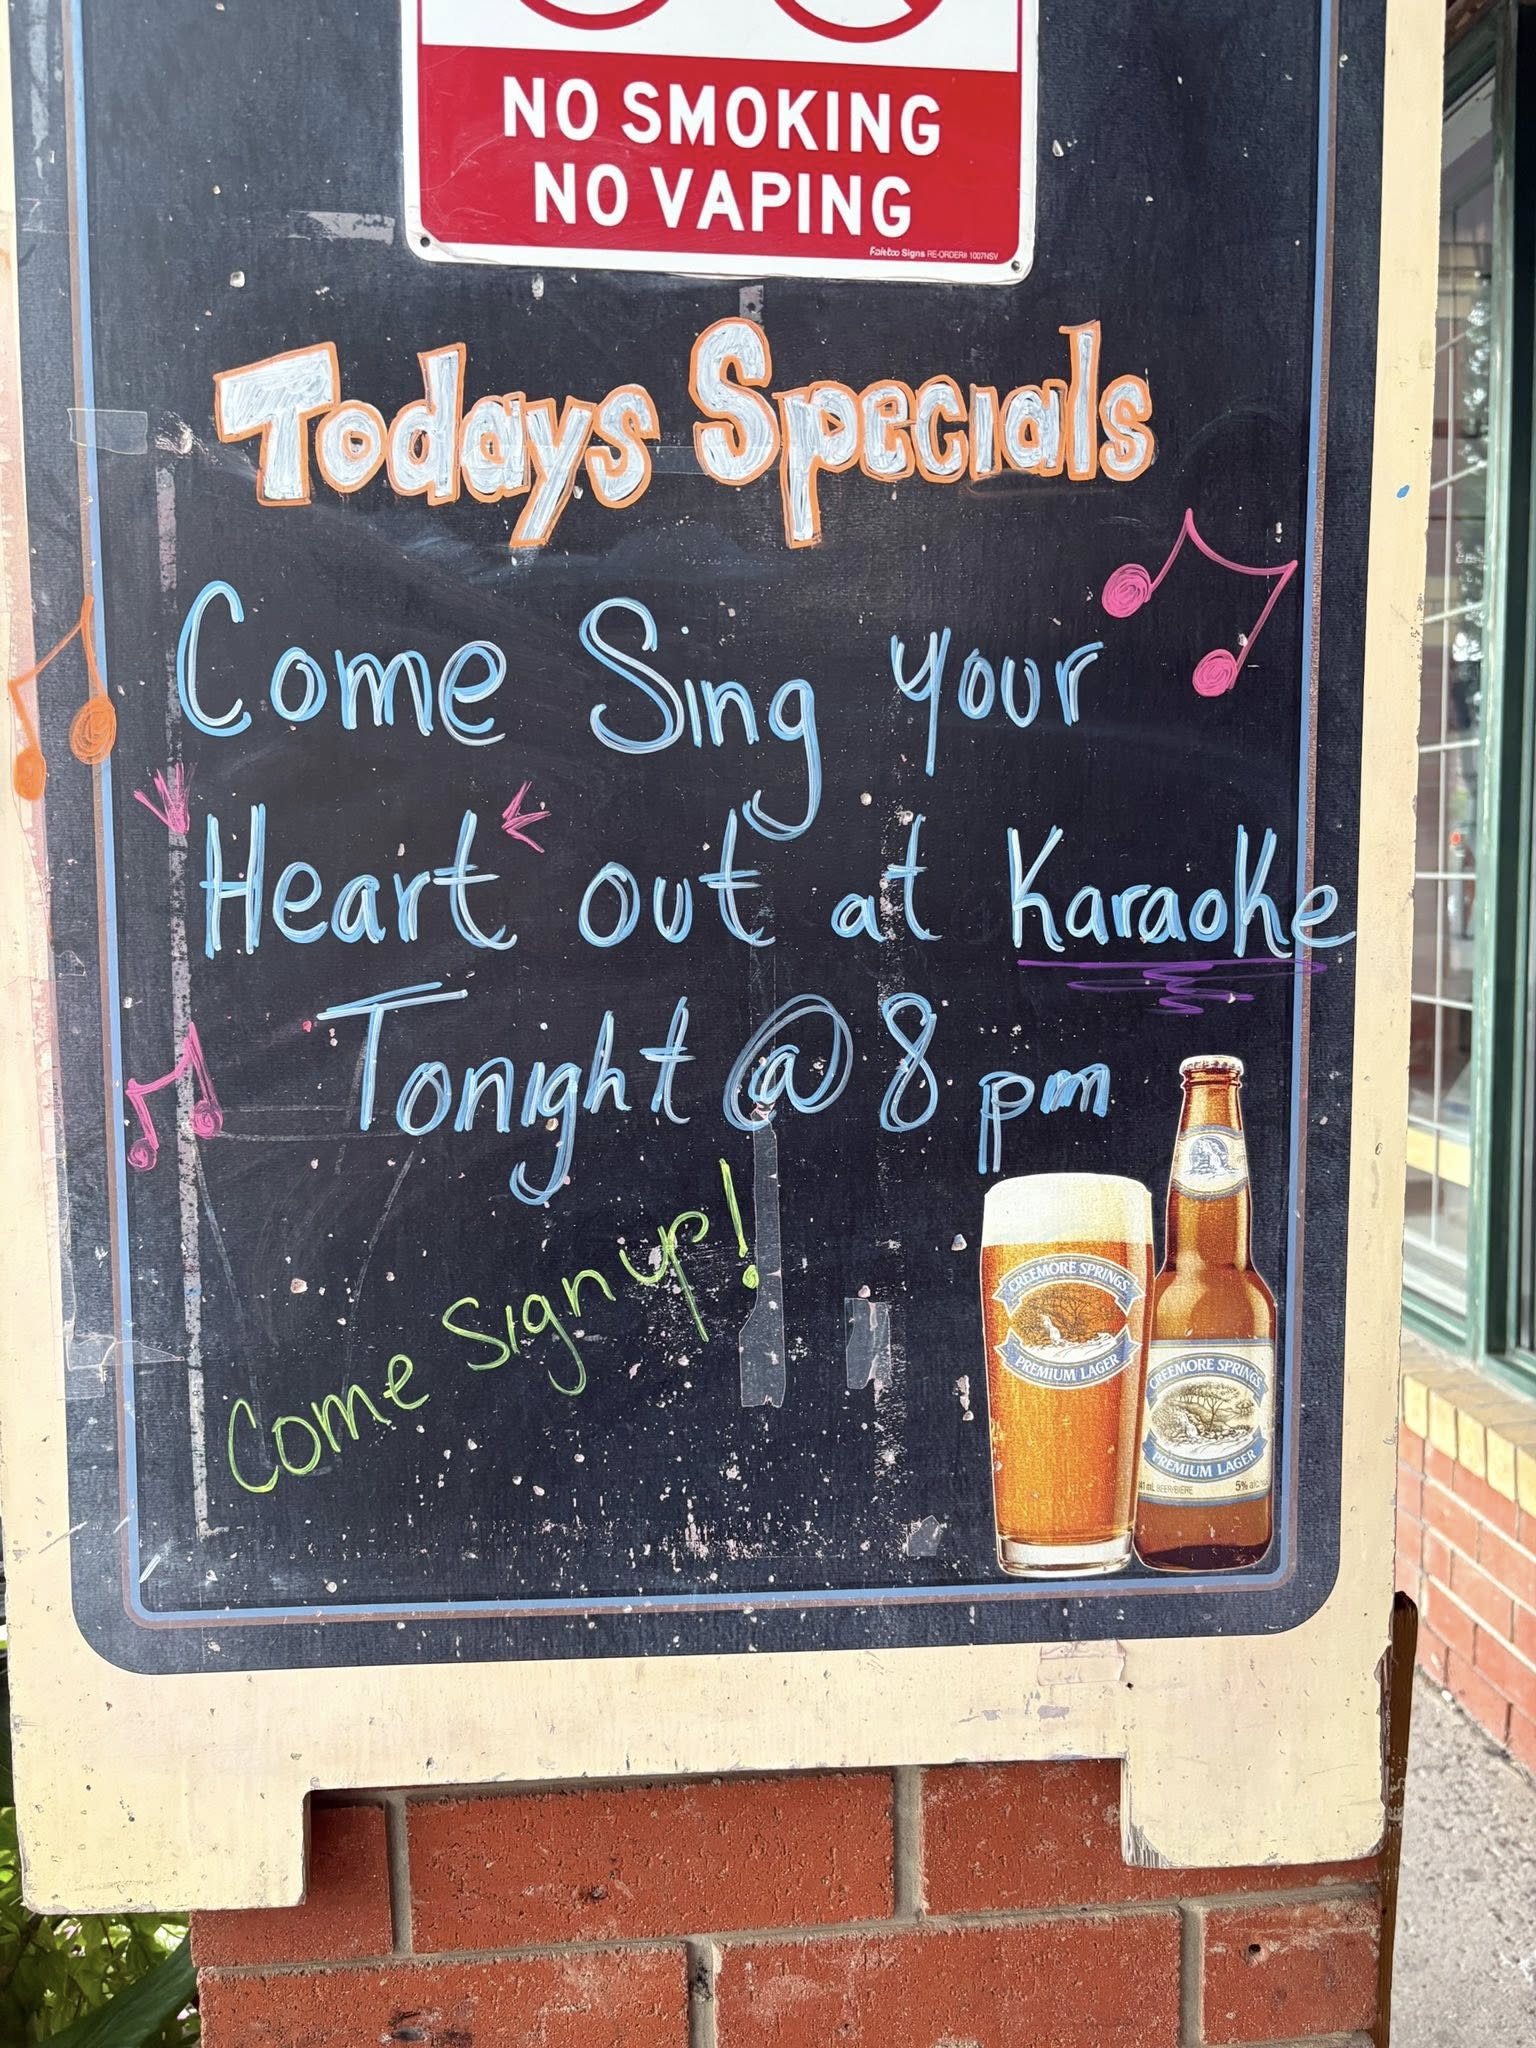 NO SMOKING
NO VAPING
Signs RE-ORDER# 1007NSV
Todays Specials
Come Sing your
Heart out at Karaoke
Tonight @ 8 pm
Come Sign up!
CREEMORE SPRINGS
PREMIUM LAGER
CREEMORE SPRINGS
PREMIUM LAGER
BEER/BIERE 5% alc